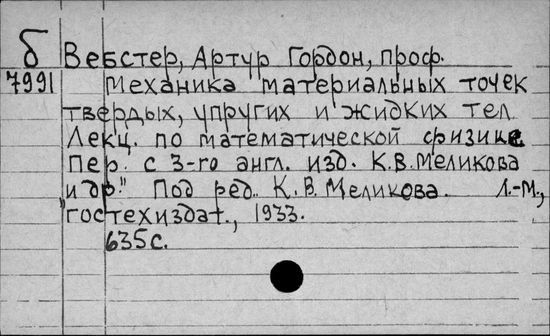 б Вебстер, Артур Гордон, проф.
7991 Механика материальных точек
твердых, упругих и жидких тел
Лекц. по математической физике
Пер. с 3-го англ. изд. К.В. Меликова
и др." Под ред. К.В. Меликова. Л.-М.,
"Гостехиздат., 1933.
635с.